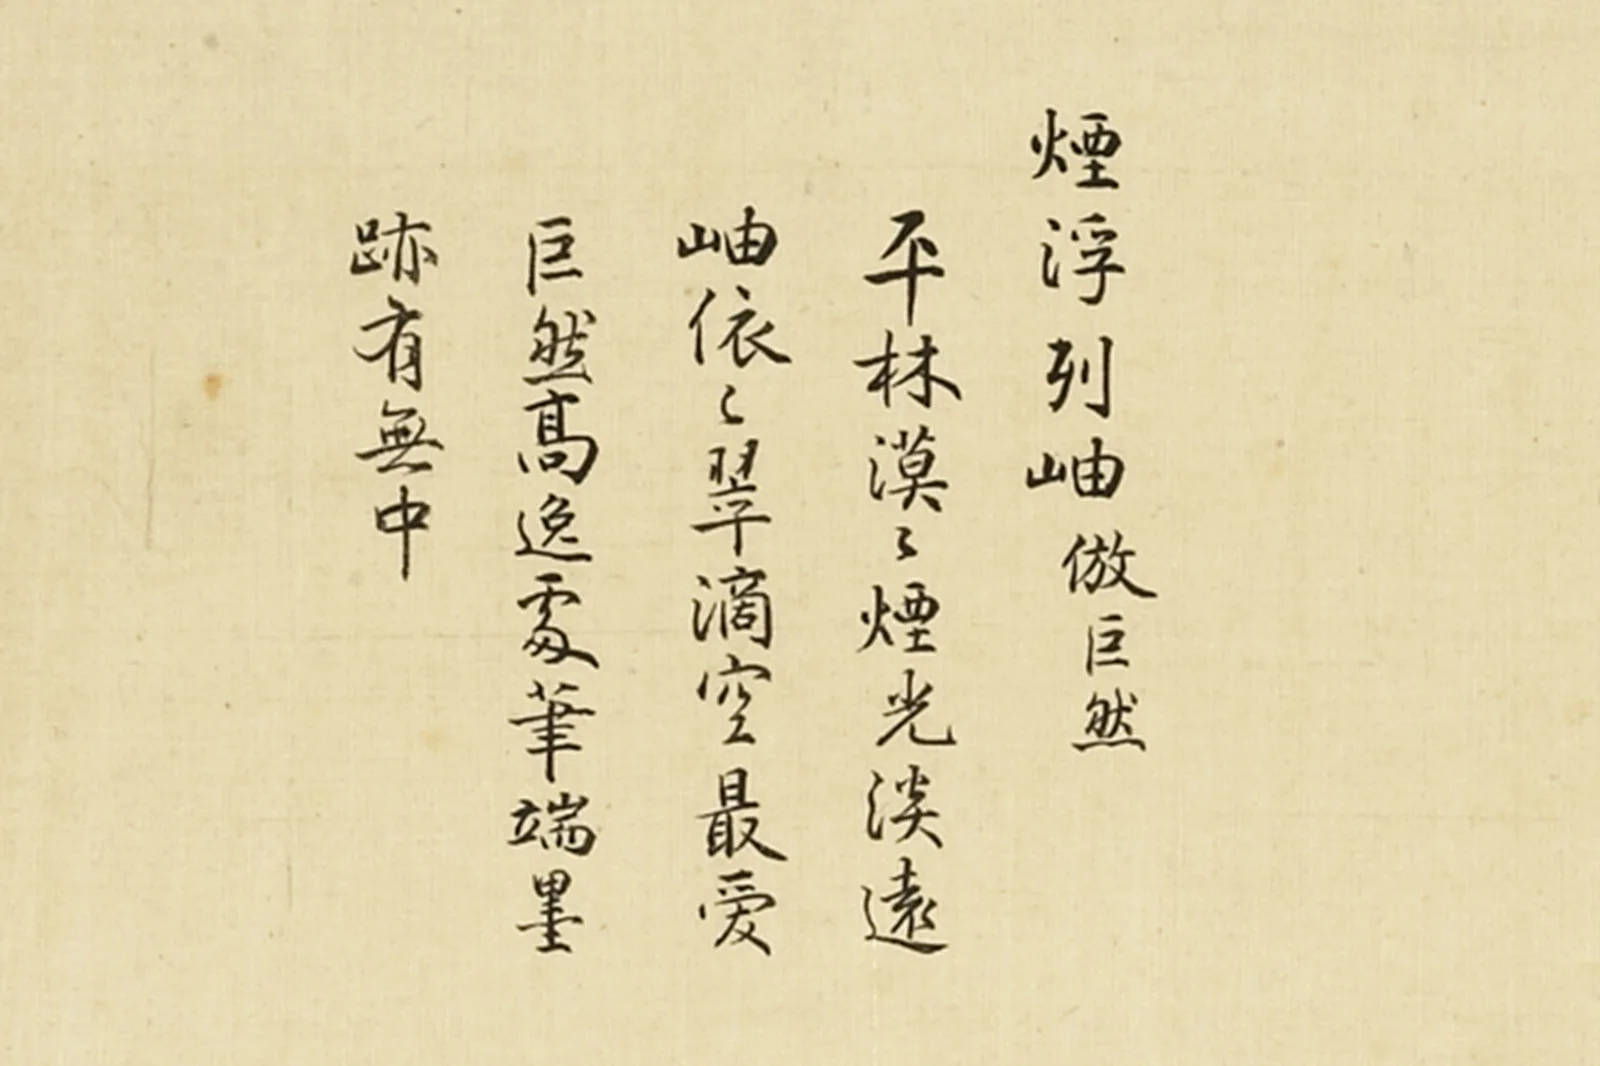 煙浮列岫倣巨然
平林漠〻煙光淡遠
岫依〻翠滴空最愛
巨然高逸處筆端墨
跡有無中